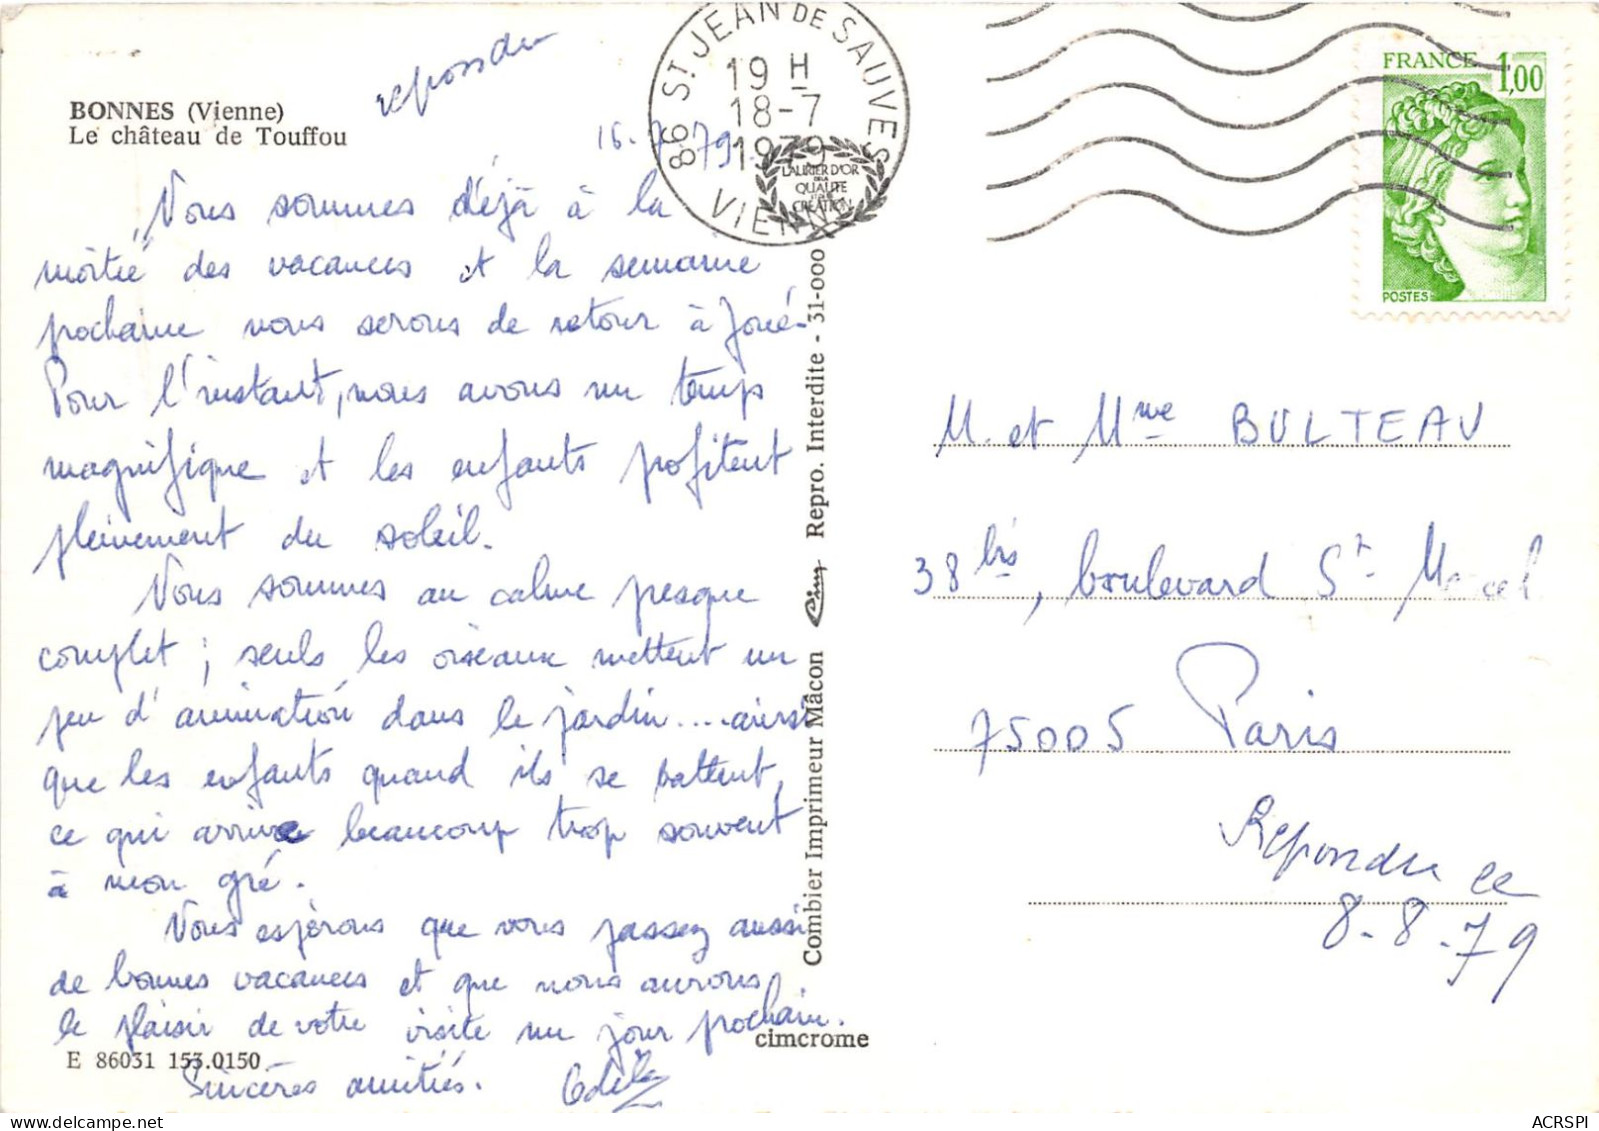 BONNES (Vienne)
Le château de Touffou
repondu
16.7.79.
86 ST JEAN DE SAUVES
19 H
18-7
1979
VIENNE
LAURIER D'OR
DE LA
QUALITE
CREATION
FRANCE 1,00
POSTES
Nous sommes déjà à la
moitié des vacances et la semaine
prochaine nous serons de retour à Joué.
Pour l'instant, nous avons un temps
magnifique et les enfants profitent
pleinement du soleil.
Nous sommes au calme presque
complet ; seuls les oiseaux mettent un
peu d'animation dans le jardin.... ainsi
que les enfants quand ils se battent,
ce qui arrive beaucoup trop souvent
à mon gré.
Nous espérons que vous passez aussi
de bonnes vacances et que nous aurons
le plaisir de votre visite un jour prochain.
Sincères amitiés. Odile
E 86031 153.0150
cimcrome
Combier Imprimeur Mâcon Cim Repro. Interdite - 31-000
M. et Mme BULTEAU
38 bis, boulevard St Marcel
75005 Paris
Repondu ce
8-8-79
ACRSPI